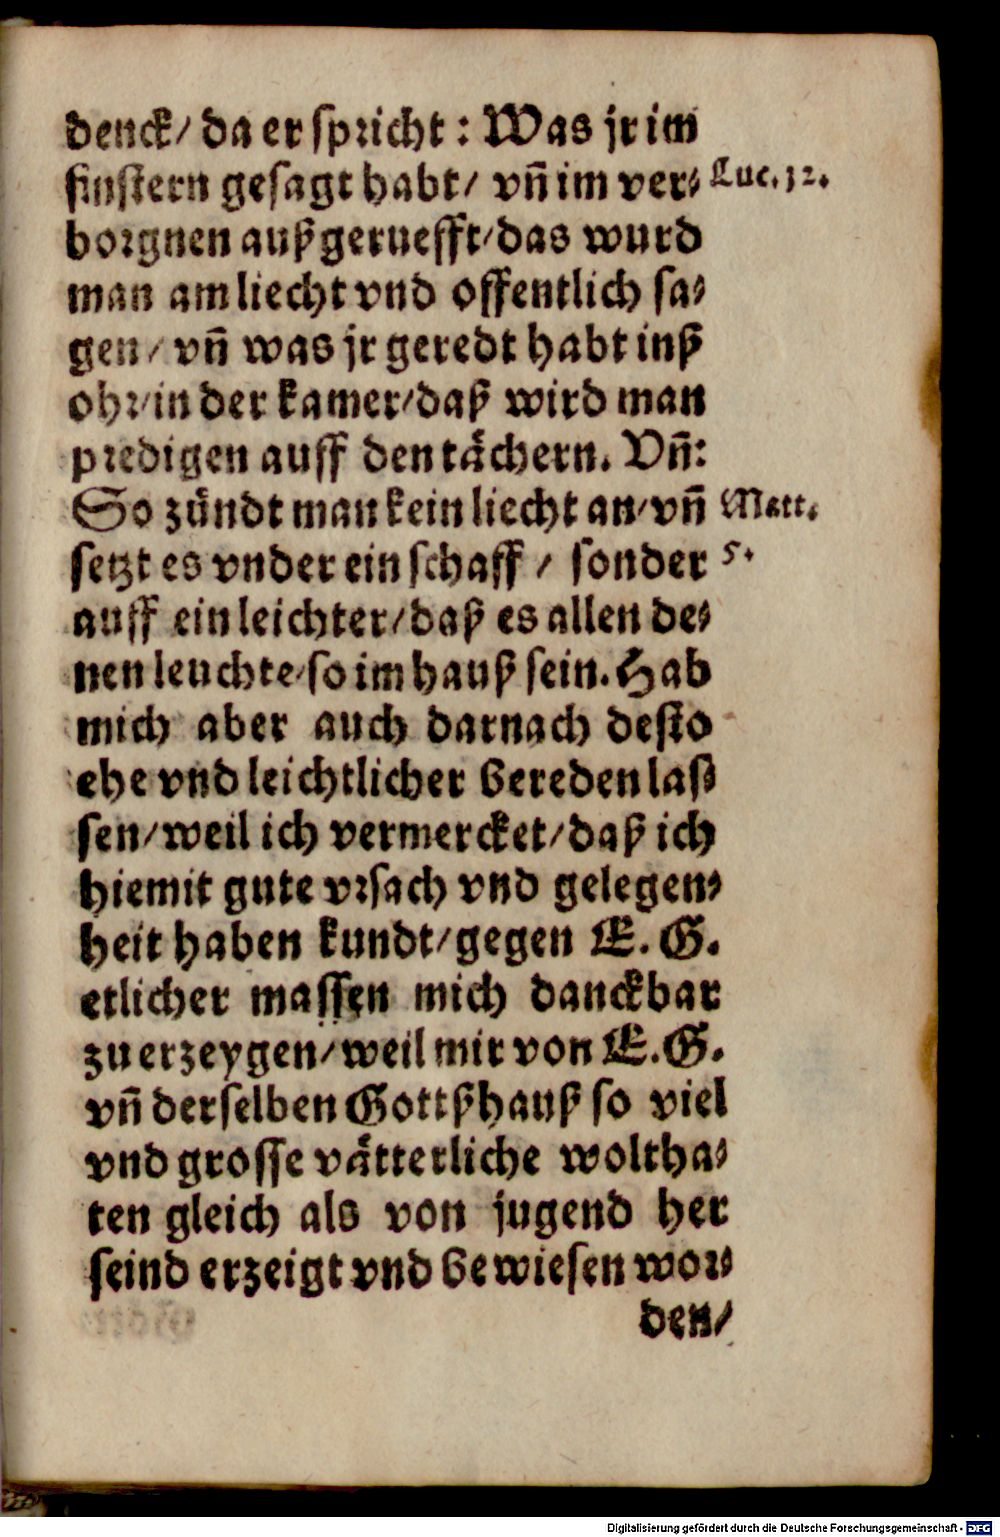 denck/ da er spricht: Was jr im
finstern gesagt habt/ vñ im ver⸗ Luc. 12.
borgnen außgeruefft/ das wurd
man am liecht vnd offentlich sa⸗
gen/ vñ was jr geredt habt inß
ohr/ in der kamer/ daß wird man
predigen auff den tächern. Vñ:
So zündt man kein liecht an/ vñ Matt.
setzt es vnder ein schaff/ sonder 5.
auff ein leichter/ daß es allen de⸗
nen leuchte/ so im hauß sein. Hab
mich aber auch darnach desto
ehe vnd leichtlicher bereden las⸗
sen/ weil ich vermercket/ daß ich
hiemit gute vrsach vnd gelegen⸗
heit haben kundt/ gegen E. G.
etlicher massen mich danckbar
zu erzeygen/ weil mir von E. G.
vñ derselben Gottßhauß so viel
vnd grosse vätterliche woltha⸗
ten gleich als von jugend her
seind erzeigt vnd bewiesen wor⸗
den/
Digitalisierung gefördert durch die Deutsche Forschungsgemeinschaft - DFG